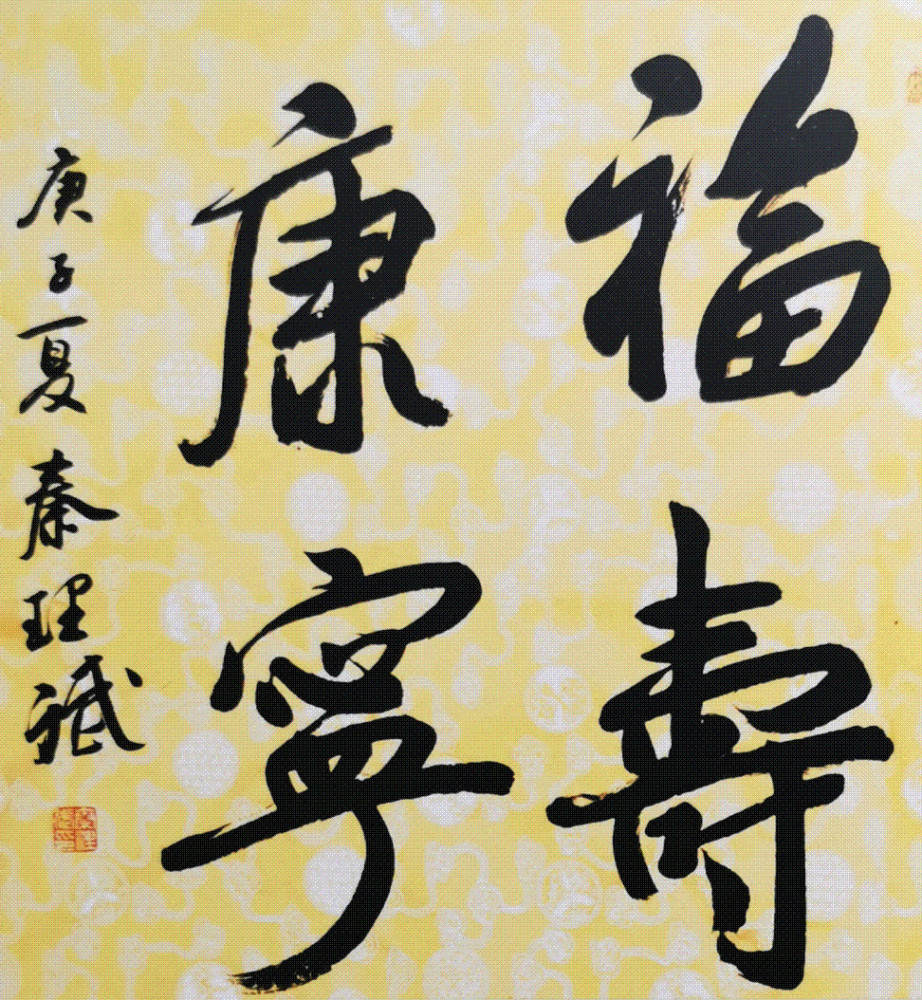 福壽
康寧
庚子夏秦理祇